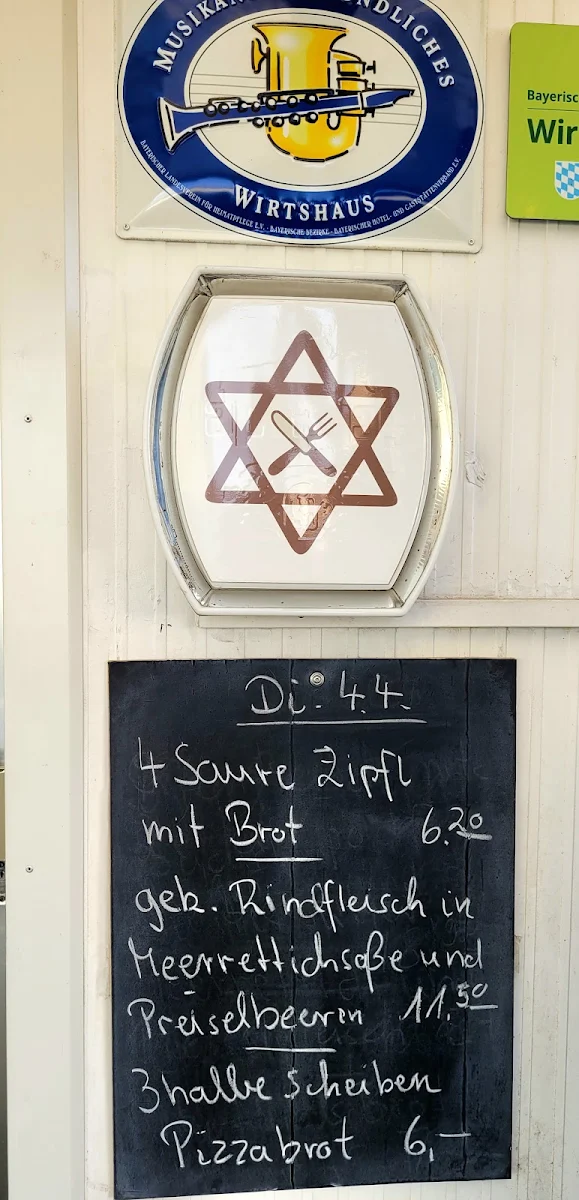 MUSIKAN NDLICHES
WIRTSHAUS
BAYERISCHER LANDESVEREIN FÜR HEIMATPFLEGE E.V. · BAYERISCHE BEZIRKE · BAYERISCHER HOTEL- UND GASTSTÄTTENVERBAND E.V.
Bayerisc
Wir
Di. 4.4.
4 Saure Zipfl
mit Brot 6.20
gek. Rindfleisch in
Meerrettichsoße und
Preiselbeeren 11.50
3 halbe Scheiben
Pizzabrot 6,-